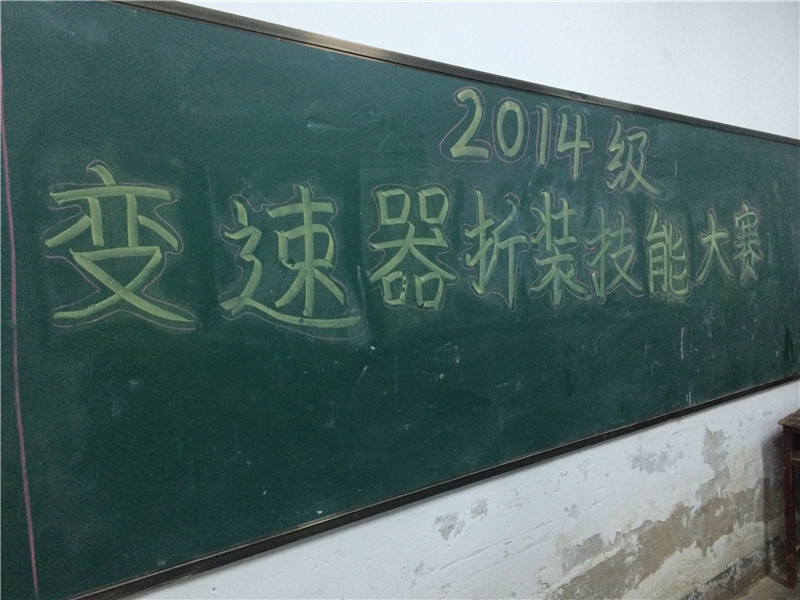 2014级
变速器折装技能大赛